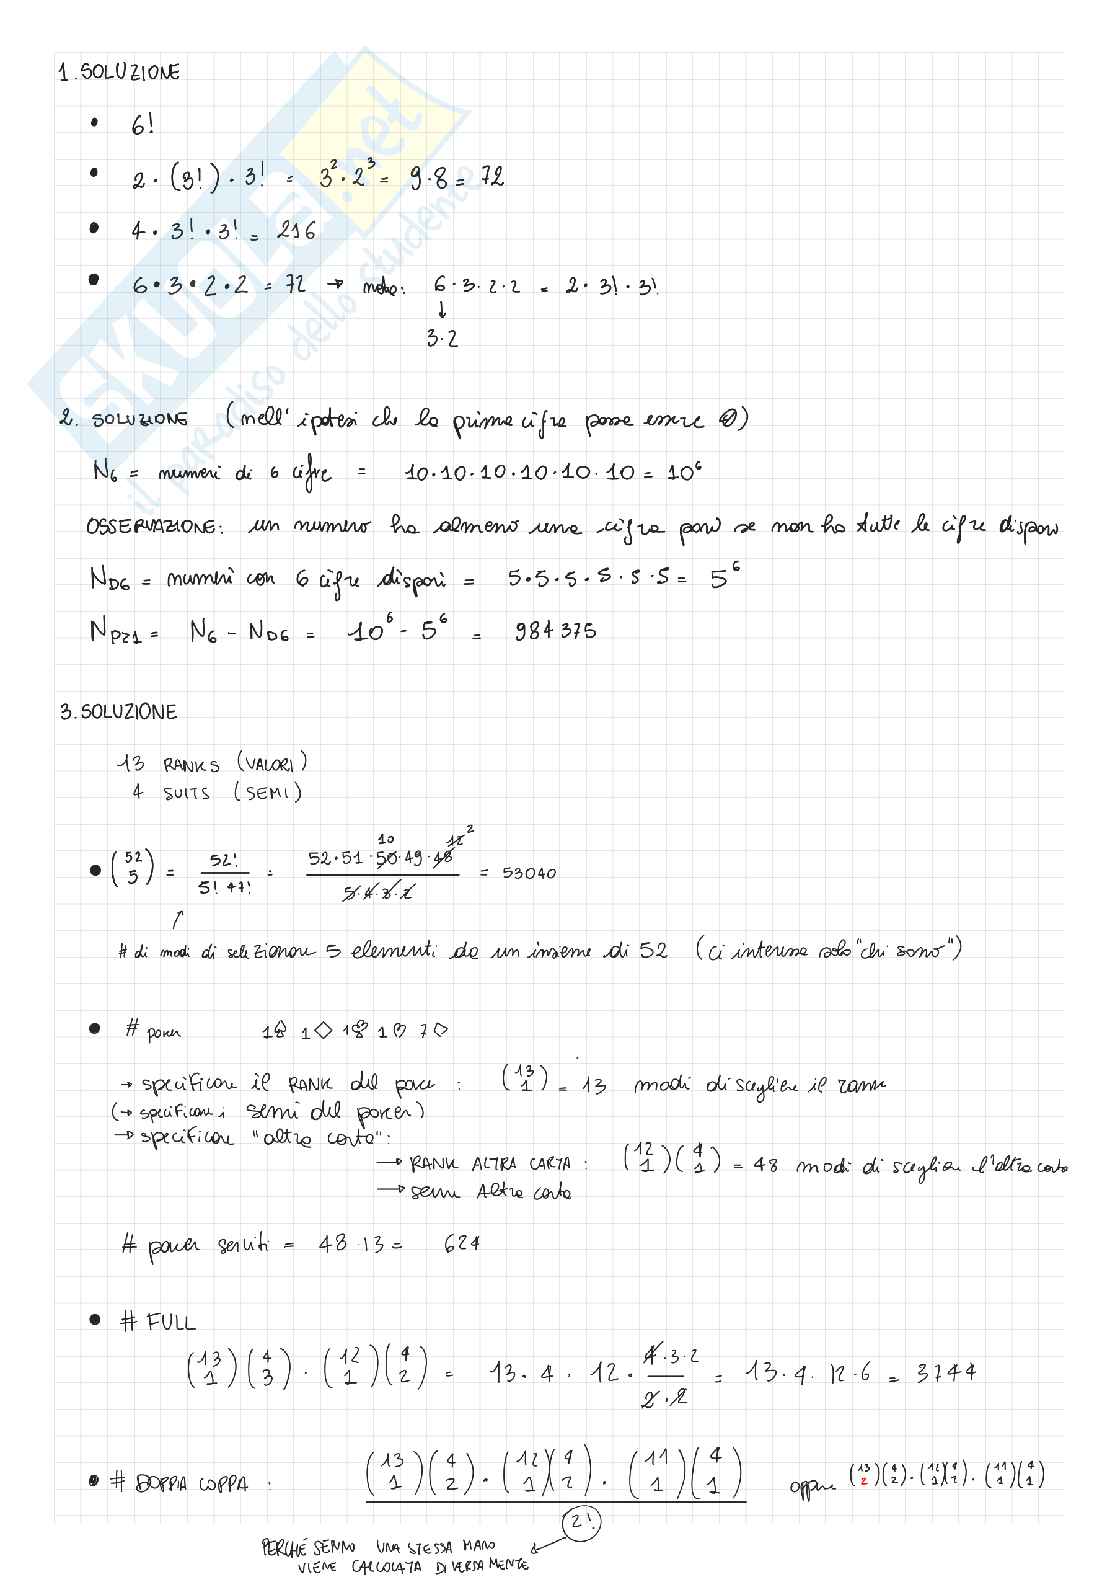 1. SOLUZIONE
• 6!
• 2 · (3!) · 3! = 3² · 2³ = 9 · 8 = 72
• 4 · 3! · 3! = 216
• 6 · 3 · 2 · 2 = 72 → 6 · 3 · 2 · 2 = 2 · 3! · 3!
↓
3 · 2
SKUOLA.net
il paradiso dello studente
2. SOLUZIONE (nell'ipotesi che la prima cifra possa essere 0)
N6 = numeri di 6 cifre = 10·10·10·10·10·10 = 10⁶
OSSERVAZIONE: un numero ha almeno una cifra pari se non ha tutte le cifre dispari
ND6 = numeri con 6 cifre dispari = 5·5·5·5·5·5 = 5⁶
NP≥1 = N6 - ND6 = 10⁶ - 5⁶ = 984375
3. SOLUZIONE
13 RANKS (VALORI)
4 SUITS (SEMI)
10 12 2
• (52 5) = 52! / 5! 47! = 52·51·50·49·48 / 5·4·3·2 = 53040
↑
# di modi di selezionare 5 elementi da un insieme di 52 (ci interessa solo "chi sono")
• # poker 1♠ 1♢ 1♣ 1♡ 7♢
→ specificare il RANK del poker : (13 1) = 13 modi di scegliere il rank
(→ specificare i semi del poker)
→ specificare "altra carta":
→ RANK ALTRA CARTA : (12 1)(4 1) = 48 modi di scegliere l'altra carta
→ seme Altra carta
# poker serviti = 48 · 13 = 624
• # FULL
(13 1)(4 3) · (12 1)(4 2) = 13 · 4 · 12 · 4·3·2 / 2·2 = 13 · 4 · 12 · 6 = 3744
• # DOPPIA COPPA : (13 1)(4 2) · (12 1)(4 2) · (11 1)(4 1) / 2! oppure (13 2)(4 2) · (12 1)(4 2) · (11 1)(4 1)
PERCHÉ SENNO UNA STESSA MANO
VIENE CALCOLATA DIVERSAMENTE